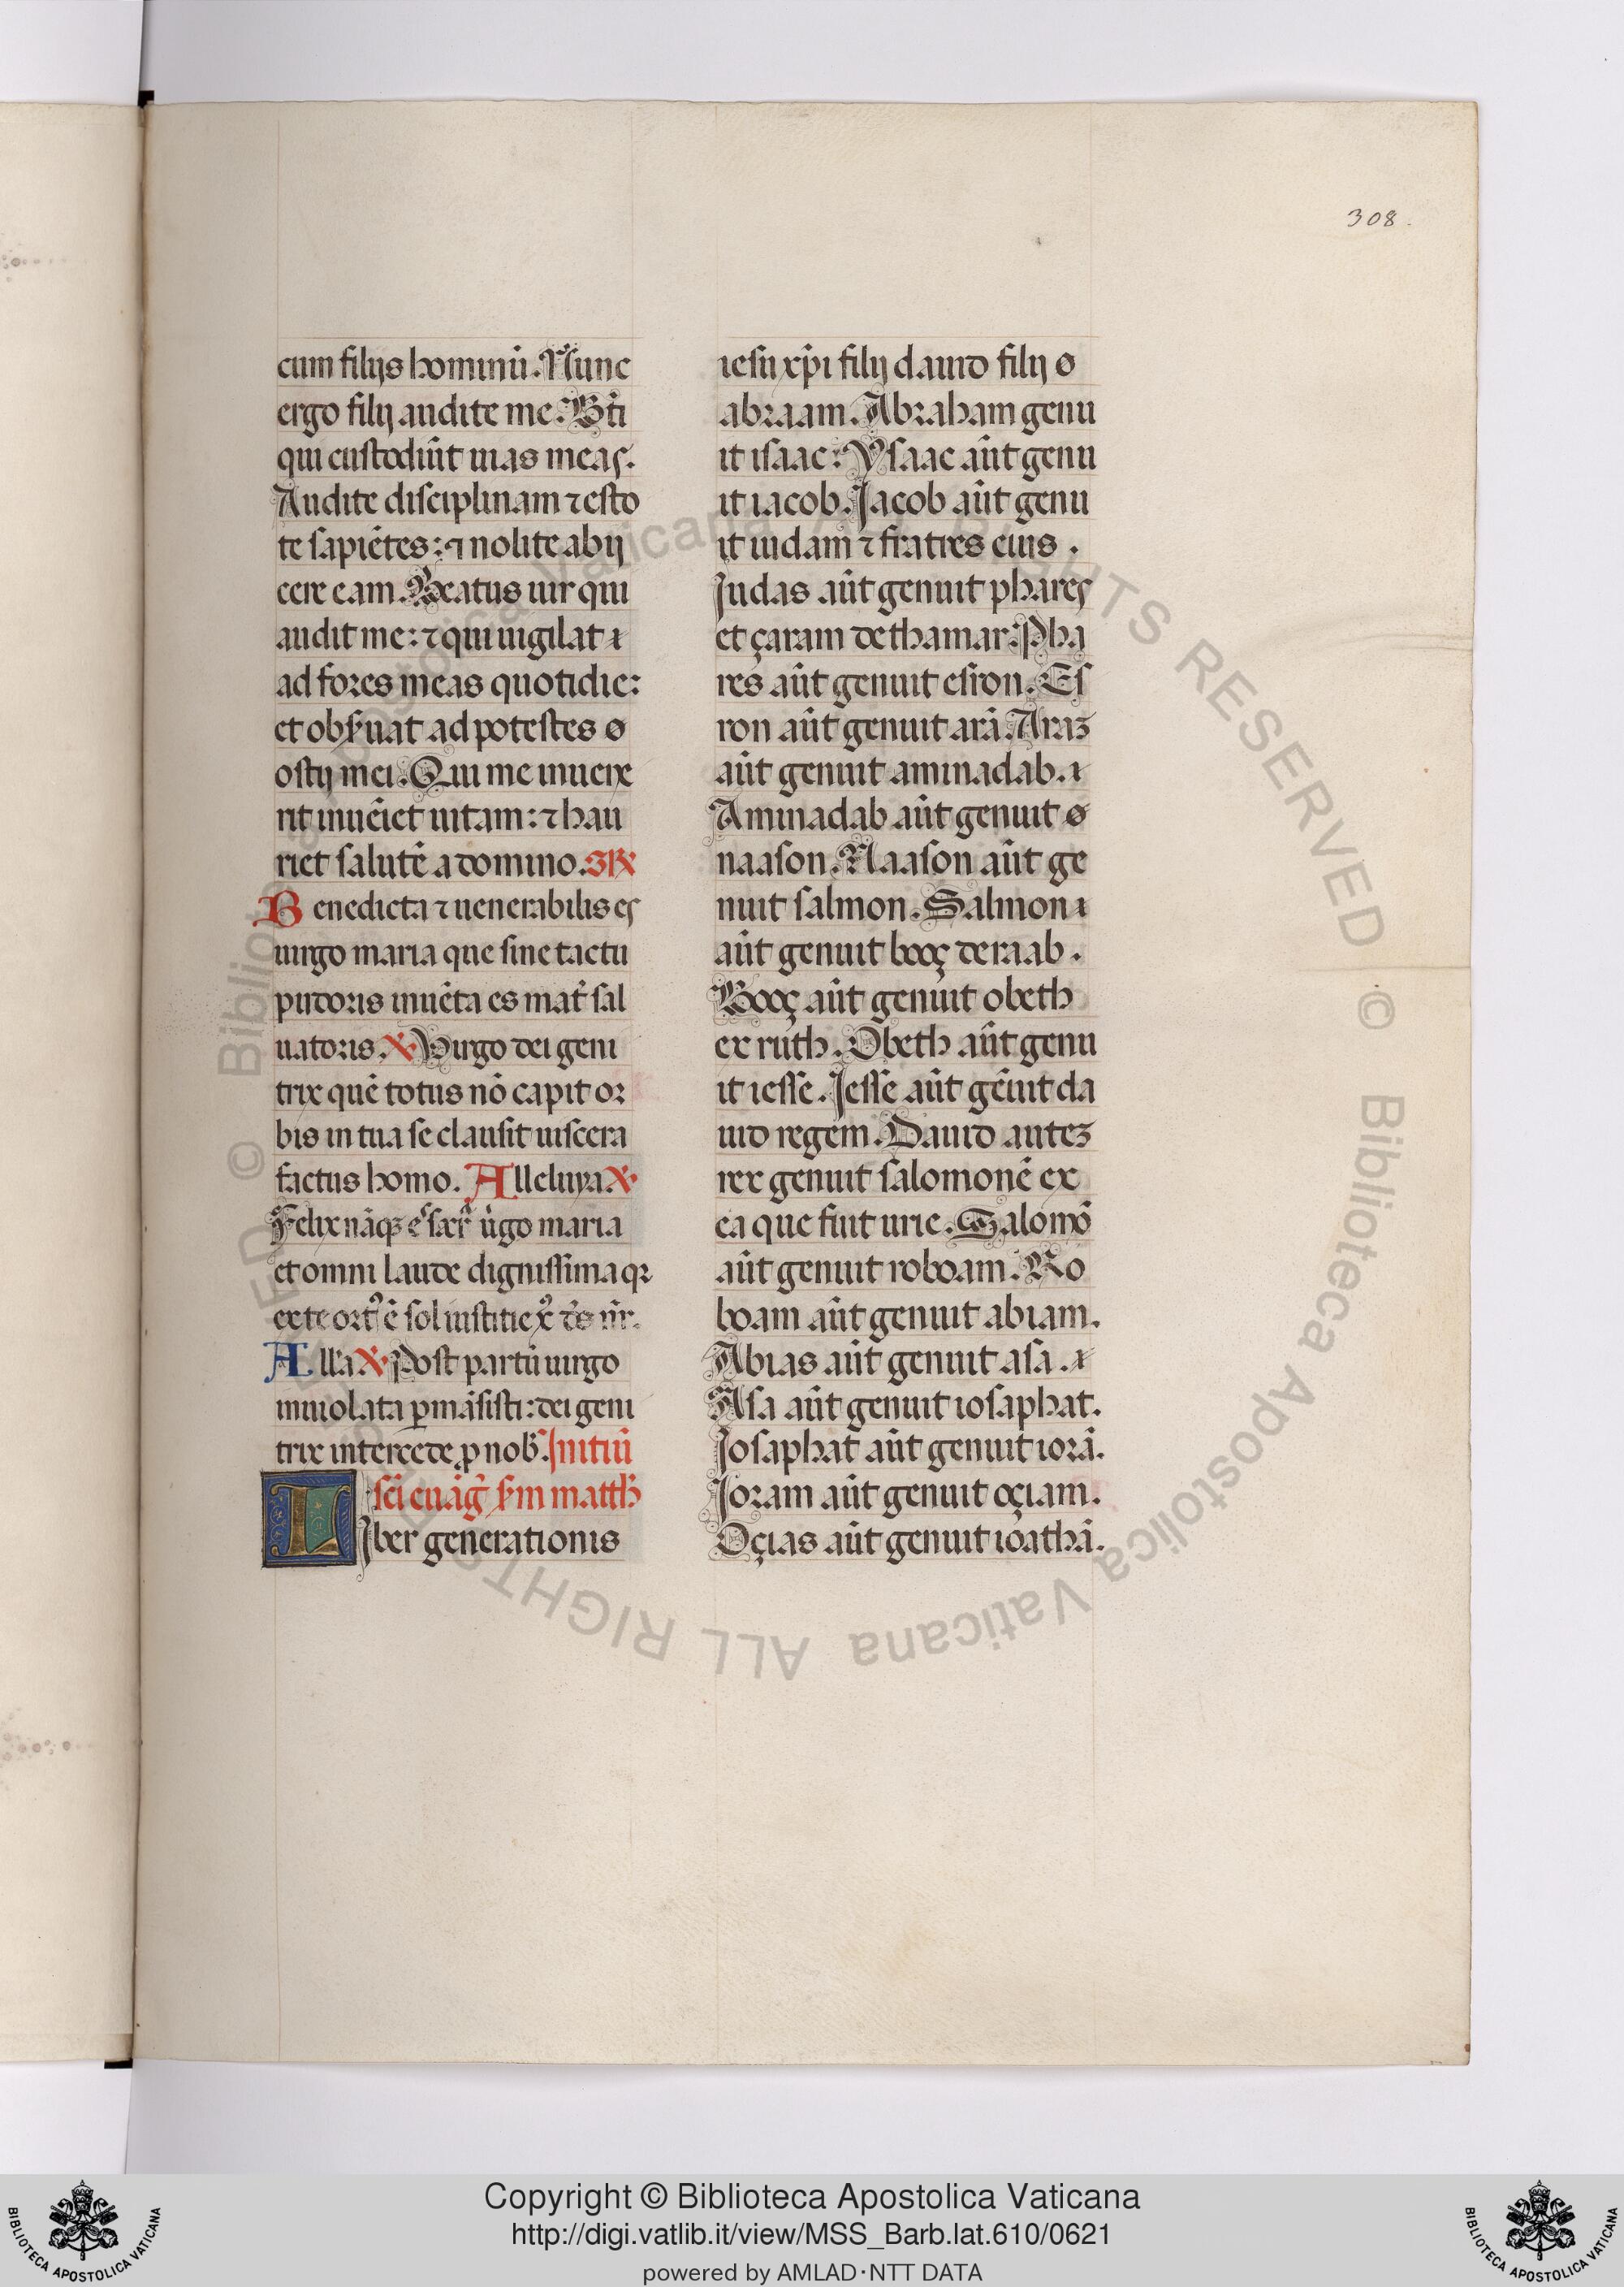 308.
cum filijs hominũ. Nunc
ergo filij audite me. Bt̃i
qui custodiũt uias meas.
Audite disciplinam ⁊ esto
te sapiẽtes: ⁊ nolite abij
cere eam. Beatus uir qui
audit me: ⁊ qui uigilat
ad fores meas quotidie:
et obs̃uat ad potestes
ostij mei. Qui me inuene
rit inuẽiet uitam: ⁊ hau
riet salutẽ a domino. GR̃
Benedicta ⁊ uenerabilis es
uirgo maria que sine tactu
pudoris inuẽta es mat̃ sal
uatoris. ℣. Virgo dei geni
trix quẽ totus nõ capit or
bis in tua se clausit uiscera
factus homo. Alleluya. ℣.
Felix nãqꝫ es sac̃ ũgo maria
et omni laude dignissima qꝛ
ex te ortꝰ ẽ sol iustitie xꝰ ds̃ nr̃.
All̃a ℣. Post partũ uirgo
inuiolata ꝑmãsisti: dei geni
trix intercede ꝓ nob̃. Initiũ
sc̃i euãg̃ s̃m matth̃
LIber generationis
iesu xp̃i filij dauid filij
abraam. Abraham genu
it isaac: Ysaac aũt genu
it iacob. Jacob aũt genu
it iudam ⁊ fratres eius.
Judas aũt genuit phares
et çaram de thamar. Pha
res aũt genuit esron. Es
ron aũt genuit arã. Araꝫ
aũt genuit aminadab.
Aminadab aũt genuit
naason. Naason aũt ge
nuit salmon. Salmon
aũt genuit booç de raab.
Booç aũt genuit obeth
ex ruth. Obeth aũt genu
it iesse. Jesse aũt gẽuit da
uid regem. Dauid auteꝫ
rex genuit salomonẽ ex
ea que fuit urie. Salomõ
aũt genuit roboam. Ro
boam aũt genuit abiam.
Abias aũt genuit asa.
Asa aũt genuit iosaphat.
Josaphat aũt genuit iorã.
Joram aũt genuit oçiam.
Oçias aũt genuit ioathã.
© Biblioteca Apostolica Vaticana ALL RIGHTS RESERVED © Biblioteca Apostolica Vaticana ALL RIGHTS RESERVED
Copyright © Biblioteca Apostolica Vaticana
http://digi.vatlib.it/view/MSS_Barb.lat.610/0621
powered by AMLAD·NTT DATA
BIBLIOTECA APOSTOLICA VATICANA
BIBLIOTECA APOSTOLICA VATICANA